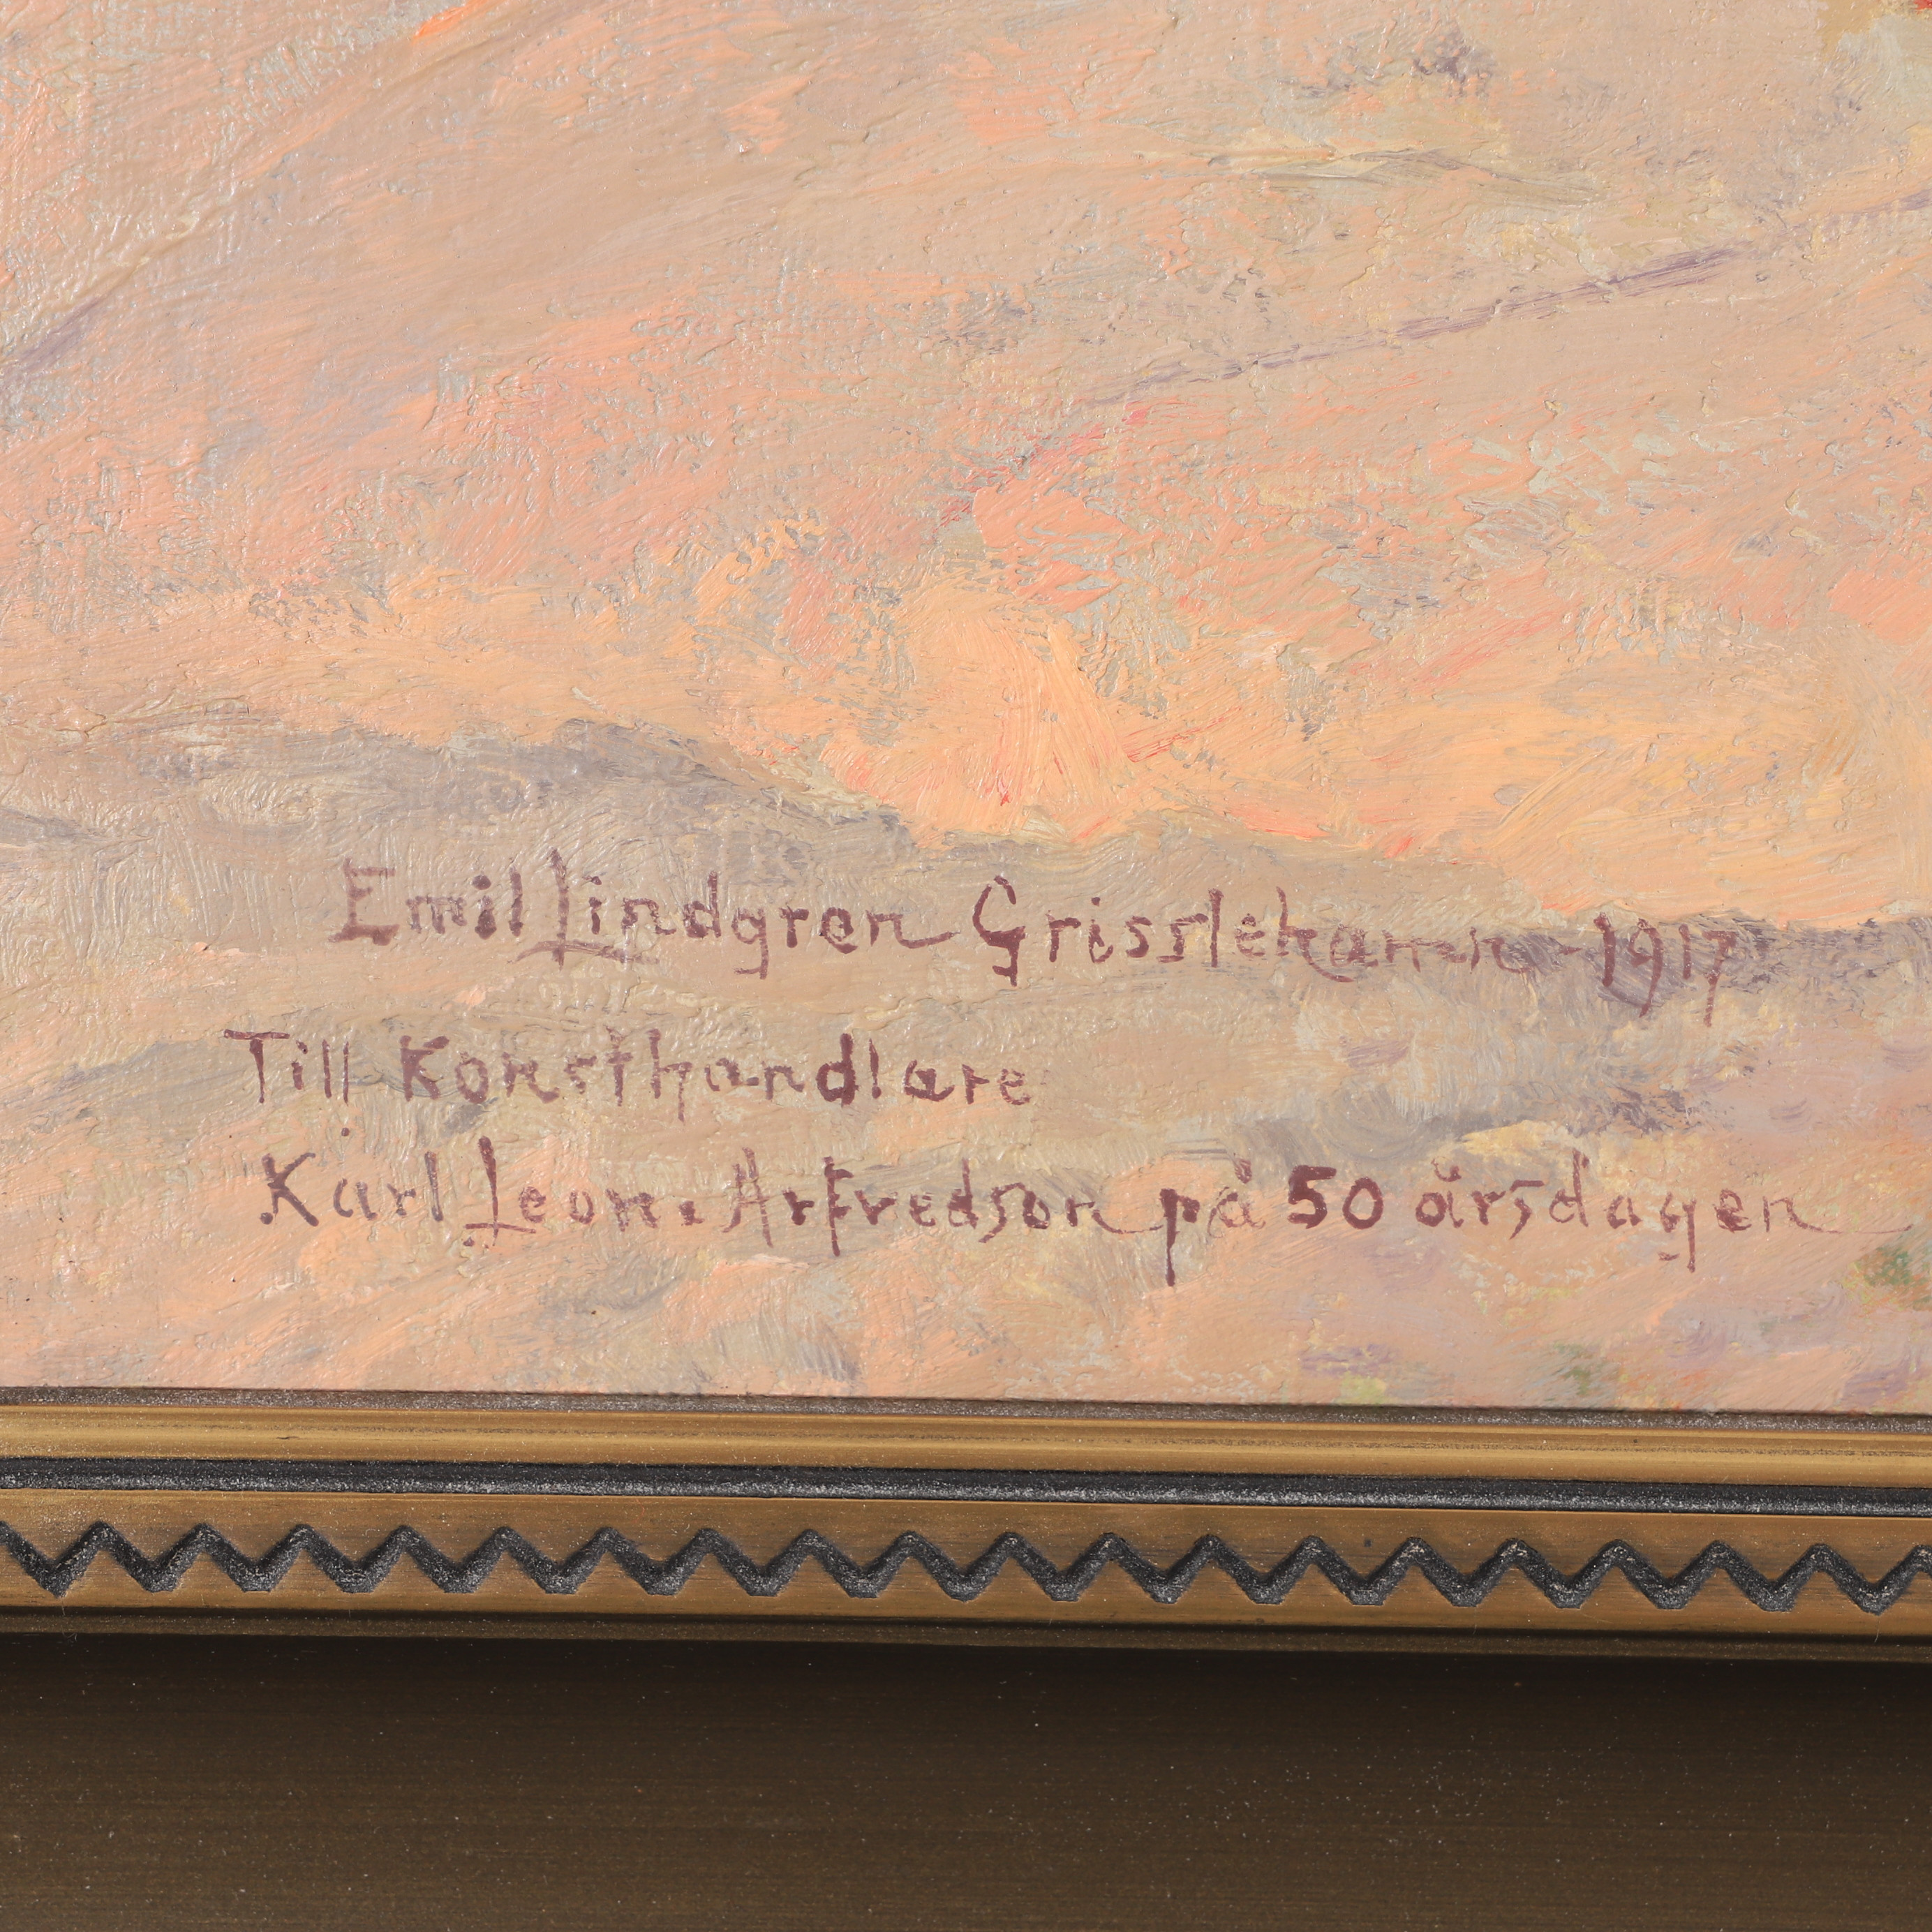 Emil Lindgren Grisslehamn - 1917
Till Konsthandlare
Karl Leon. Arfvedson på 50 årsdagen